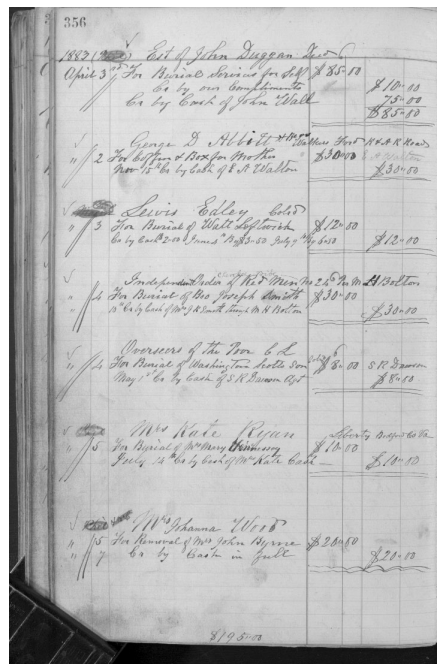 356
1883 Est of John Duggan Decd
April 3rd For Burial Services for Self $85.00
Cr by our Compliments $10.00
Cr by Cash of John Wall 75.00
$85.00
George D Abbitt Walkers Ford R & A R Road
" 2 For Coffin & Box for Mother $30.00
Nov 15th Cr by Cash of Walton $30.00
Lewis Edley Cold
" 3 For Burial of Walt Leftwich $12.50
Cr by Cash 2.00 James July 9th by 6.50 $12.00
Independent Order of Red Men No 24 Per M H Bolton
" 4 For Burial of Geo Joseph Smith $30.00
Cr by Cash of Mrs J R Smith through M H Bolton $30.00
Overseers of the Poor C L
" 4 For Burial of Washington Scotts Son $8.00 S R Dawson
May 1st Cr by Cash of S R Dawson Agt $8.00
Mrs Kate Ryan Liberty Bedford Co Va
" 5 For Burial of Mrs Mary Hennessy $10.00
July 14th Cr by Cash of Mrs Kate Cash $10.00
Mrs Johanna Wood
" 5 For Removal of Mrs John Byrne $20.00
" 7 Cr by Cash in full $20.00
$195.00